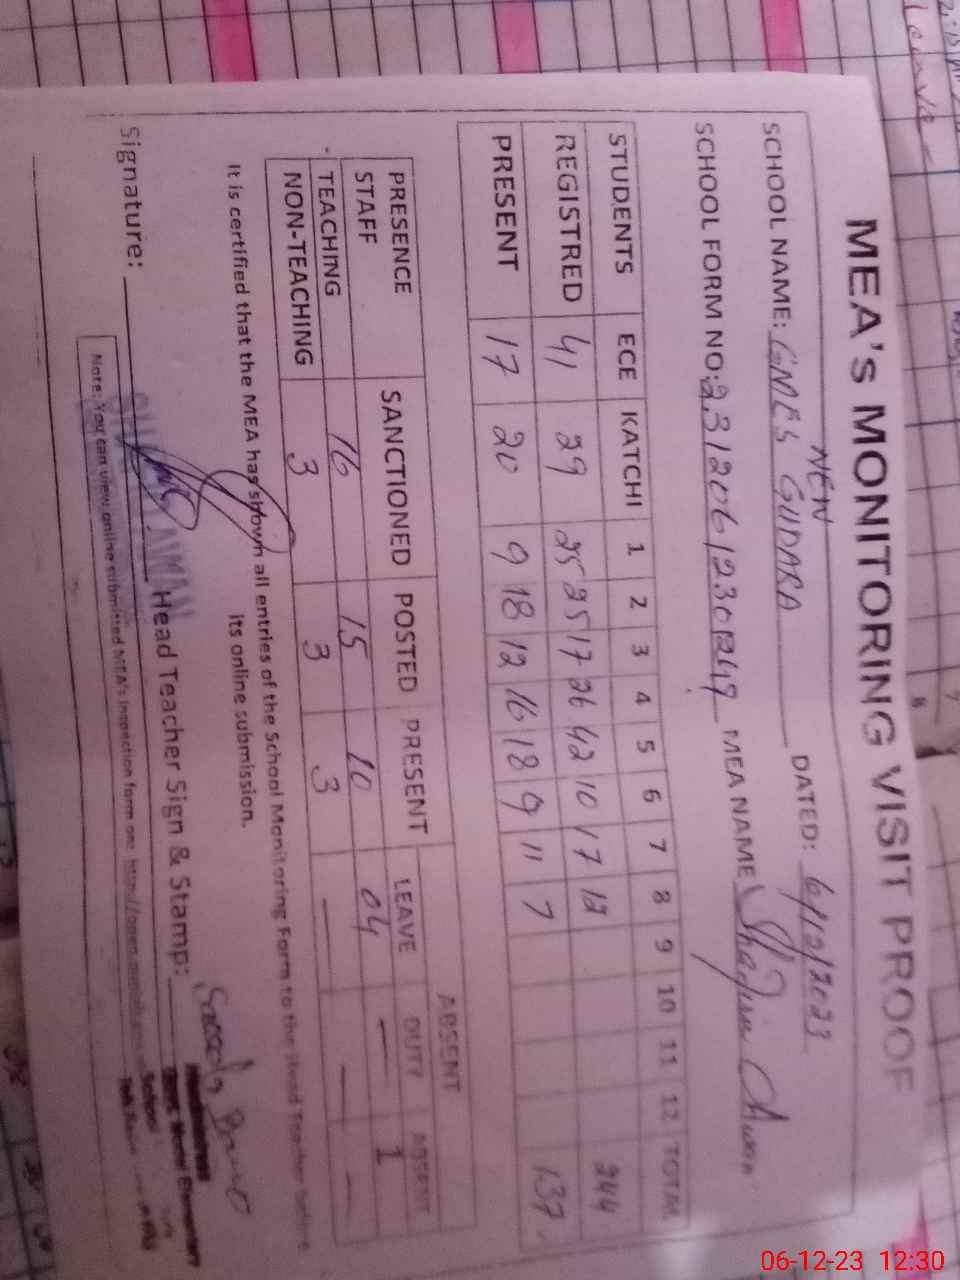 MEA'S MONITORING VISIT PROOF
NEW
SCHOOL NAME: GMES GUDARA DATED: 6/12/2023
SCHOOL FORM NO: MEA NAME
STUDENTS ECE KATCHI 1 2 3 4 5 6 7 8 9 10 11 12 TOTAL
REGISTRED 41 29 25 25 17 26 42 10 17 12 244
PRESENT 17 20 9 18 12 16 18 9 11 7 137
PRESENCE SANCTIONED POSTED PRESENT ABSENT
STAFF LEAVE DUTY ABSENT
TEACHING 16 15 10 04 — 1
NON-TEACHING 3 3 3 — — —
It is certified that the MEA has shown all entries of the School Monitoring Form to the Head Teacher before
its online submission.
Signature: Head Teacher Sign & Stamp:
Note: You can view online submitted MEA's inspection form on:
06-12-23 12:30